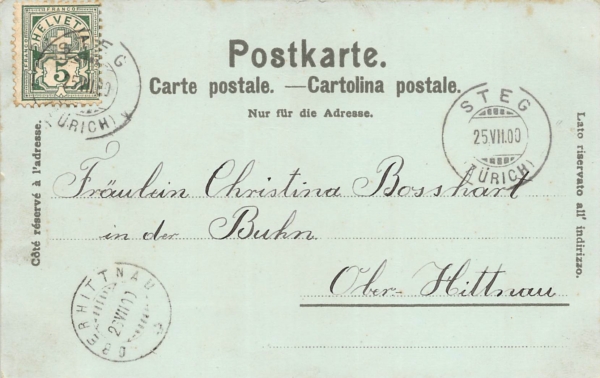 HELVETIA
FRANCO FRANCO
5
STEG
(ZÜRICH)
Postkarte.
Carte postale. — Cartolina postale.
Nur für die Adresse.
STEG
25.VII.00
(ZÜRICH)
Côté réservé à l'adresse.
Lato riservato all' indirizzo.
Fräulein Christina Bosshart
in der Buhn.
Ober-Hittnau
OBERHITTNAU
26.VII.00